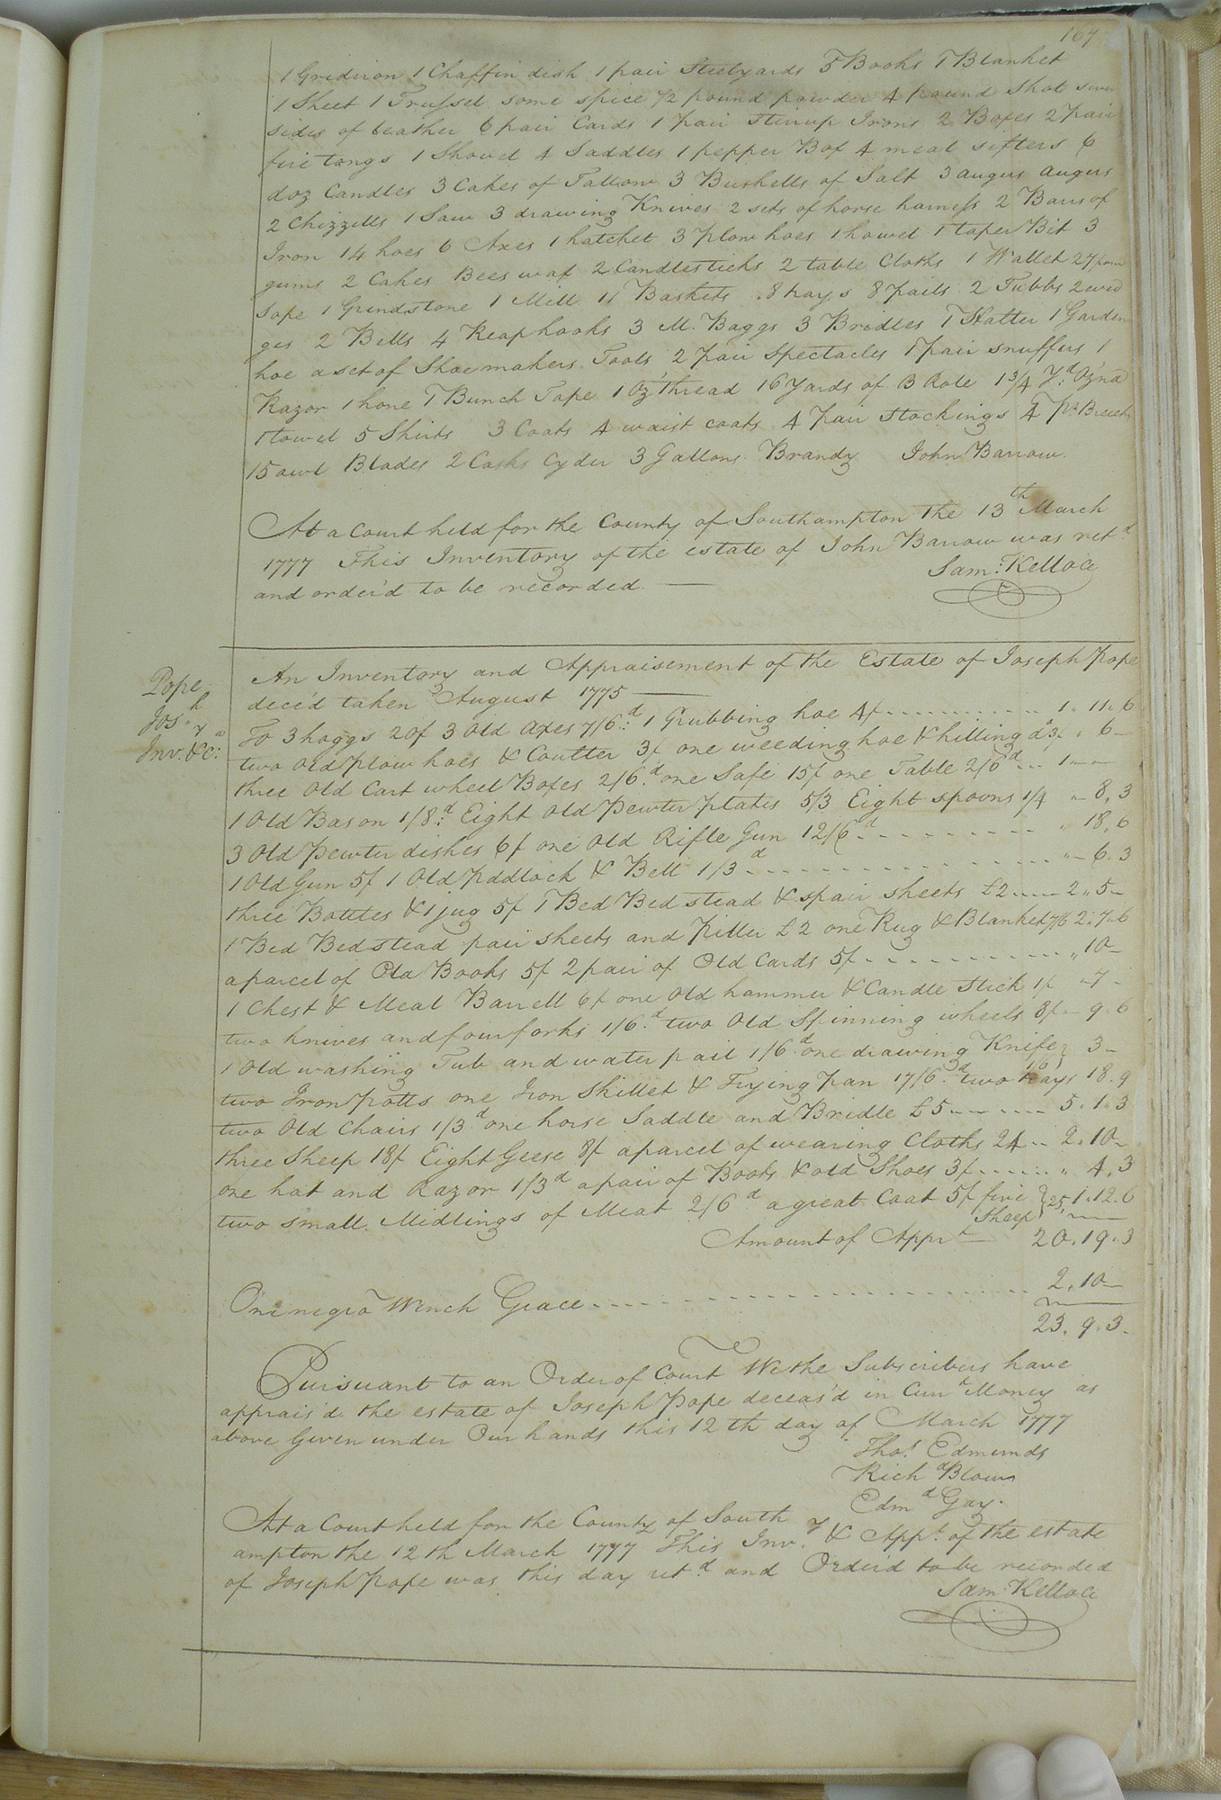 167
1 Gridiron 1 Chaffin dish 1 pair Steelyards 5 Books 1 Blanket
1 Sheet 1 Trussel some spice 1/2 pound powder 4 pound Shot seven
sides of leather 6 pair Cards 1 pair stirrup Irons 2 Boxes 2 pair
fire tongs 1 Shovel 4 Saddles 1 pepper Box 4 meal sifters 6
doz Candles 3 Cakes of Tallow 3 Bushells of Salt 3 augus augurs
2 Chizzills 1 Saw 3 drawing Knives 2 sets of horse harness 2 Bars of
Iron 14 hoes 6 Axes 1 hatchet 3 plow hoes 1 howel 1 taper Bit 3
gums 2 Cakes Bees wax 2 Candlesticks 2 table Cloths 1 Wallet 27 poun
Sope 1 Grindstone 1 Mill 11 Baskets 8 trays 8 pails 2 Tubbs 2 wed
ges 2 Bells 4 Reaphooks 3 M. Baggs 3 Bridles 1 Slatter 1 Garden
hoe a set of Shoemakers Tools 2 pair Spectacles 1 pair snuffers 1
Razor 1 hone 1 Bunch Tape 1 Oz thread 16 Yards of B Role 1 3/4 Yd Ozna
1 towel 5 Shirts 3 Coats 4 waist coats 4 pair stockings 4 pr Breech
15 awl Blades 2 Casks Cyder 3 Gallons Brandy John Barrow
At a Court held for the County of Southampton the 13th March
1777 This Inventory of the estate of John Barrow was retd
and order'd to be recorded Sam: Kello CC
Pope
Josh
Invy &ca:
An Inventory and Appraisement of the Estate of Joseph Pope
decē'd taken August 1775
To 3 hoggs 20/ 3 Old Axes 7/6d 1 Grubbing hoe 4/ 1. 11. 6
two old plow hoes & Coutter 3/ one weeding hoe & hilling do 3/ " 6 -
three Old Cart wheel Boxes 2/6d one Safe 15/ one Table 2/6d 1 - -
1 Old Bason 1/8d Eight Old Pewter plates 5/3 Eight spoons 1/4 " 8. 3
3 Old Pewter dishes 6/ one Old Rifle Gun 12/6d " 18. 6
1 Old Gun 5/ 1 Old Paddlock & Bell 1/3d " 6. 3
three Bottles & 1 jug 5/ 1 Bed Bed stead & pair sheets £2 2 " 5 -
1 Bed Bedstead pair sheets and Piller £2 one Rug & Blanket 7/6 2. 7. 6
a parcel of Old Books 5/ 2 pair of Old Cards 5/ " 10 -
1 Chest & Meal Barrell 6/ one Old hammer & Candle Stick 1/ " 7 -
two knives and four forks 1/6d two Old Spinning wheels 8/ - 9. 6
1 Old washing Tub and water pail 1/6d one drawing Knife 1/6 3 -
two Iron Potts one Iron Skillet & Frying pan 17/6d two trays 18. 9
two Old Chairs 1/3d one horse Saddle and Bridle £5 5. 1. 3
three Sheep 18/ Eight Geese 8/ a parcel of wearing Cloths 24 2. 10 -
one hat and Razor 1/3d a pair of Boots & old Shoes 3/ " 4. 3
two small Midlings of Meat 2/6d a great Coat 5/ five Sheep 25/ 1. 12. 6
Amount of Apprt 20. 19. 3
One negro Wench Grace 2. 10 -
23. 9. 3.
Pursuant to an Order of Court We the Subscribers have
apprais'd the estate of Joseph Pope deceas'd in Curt Money as
above Given under Our hands this 12th day of March 1777
Thos Edmunds
Richd Blow
Edmd Gay
At a Court held for the County of South
ampton the 12th March 1777 This Invy & Appt. of the estate
of Joseph Pope was this day retd and Order'd to be recorded
Sam: Kello CC